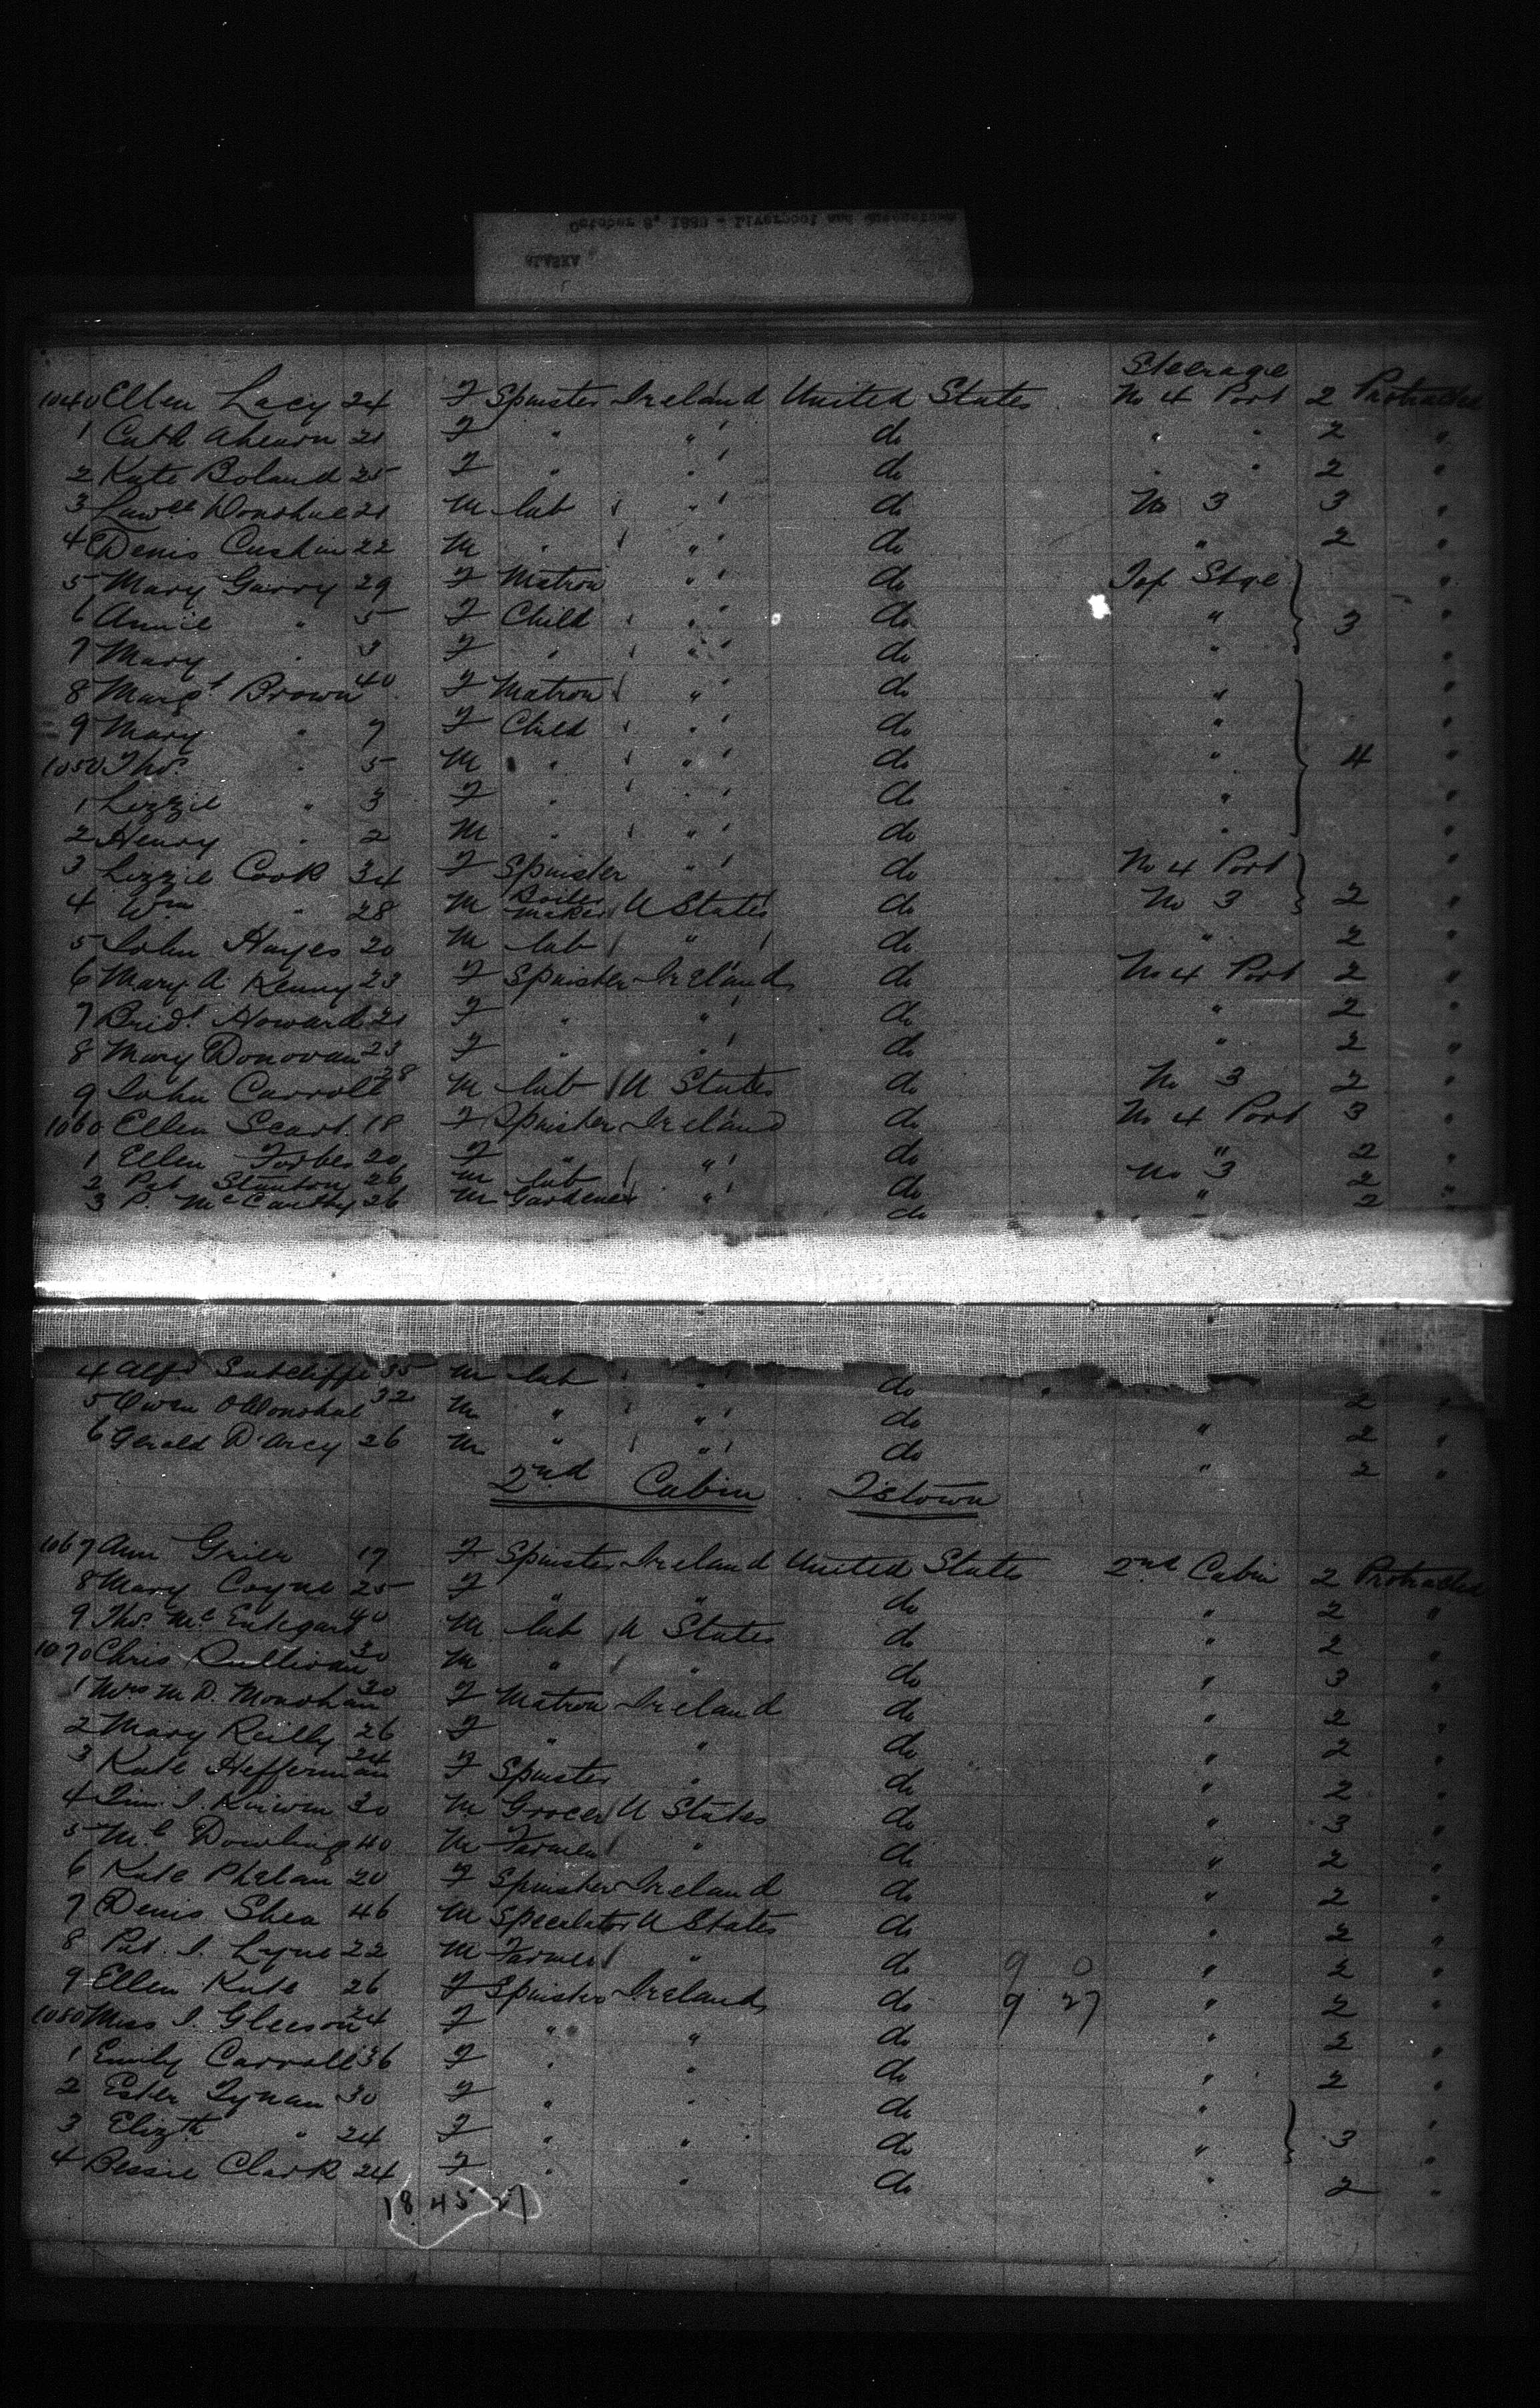 October 8, 1883 - Liverpool and Queenstown
ALASKA
Steerage
1040 Ellen Lacy 24 F Spinster Ireland United States No 4 Port 2 Protracted
1 Cath Ahearn 21 F " " do " " 2 "
2 Kate Boland 25 F " " do " " 2 "
3 Lawce Donohue 21 M lab " do No 3 3 "
4 Denis Cushin 22 M " " do " 2 "
5 Mary Garry 29 F Matron " do Top Stge "
6 Annie " 5 F Child " do " 3 "
7 Mary " 3 F " " do " "
8 Margt Brown 40 F Matron " do " "
9 Mary " 7 F Child " do " "
1050 Thos " 5 M " " do " 4 "
1 Lizzie " 3 F " " do " "
2 Henry " 2 M " " do " "
3 Lizzie Cook 34 F Spinster " do No 4 Port "
4 Wm " 28 M Boiler Maker U States do No 3 2 "
5 John Hayes 20 M lab " do " 2 "
6 Mary A Kenny 23 F Spinster Ireland do No 4 Port 2 "
7 Bridt Howard 21 F " " do " 2 "
8 Mary Donovan 23 F " " do " 2 "
9 John Carroll 28 M lab U States do No 3 2 "
1060 Ellen 18 F Spinster Ireland do No 4 Port 3 "
1 Ellen Forbes 20 F " " do " 2 "
2 Pat Stanton 26 M lab " do No 3 2 "
3 P. McCarthy 26 M Gardener " do " 2 "
4 Alfd Sutcliffe 35 M lab " do " 2 "
5 Owen O'Donohue 32 M " " do " 2 "
6 Gerald D'Arcy 26 M " " do " 2 "
2nd Cabin Qstown
1067 Ann Grier 17 F Spinster Ireland United States 2nd Cabin 2 Protracted
8 Mary Coyne 25 F " " do " 2 "
9 Thos. McEntegart 40 M lab U States do " 2 "
1070 Chris Sullivan 30 M " " do " 3 "
1 Mrs M D. Monohan 30 F Matron Ireland do " 2 "
2 Mary Reilly 26 F " " do " 2 "
3 Kate Heffernan 24 F Spinster " do " 2 "
4 Jim. J. Kirwin 30 M Grocer U States do " 3 "
5 Ml Dowling 40 M Farmer " do " 2 "
6 Kate Phelan 20 F Spinster Ireland do " 2 "
7 Denis Shea 46 M Speculator U States do " 2 "
8 Pat. J. Lyne 22 M Farmer " do 9 0 " 2 "
9 Ellen Kate 26 F Spinster Ireland do 9 27 " 2 "
1080 Miss J. Gleeson 24 F " " do " 2 "
1 Emily Carroll 36 F " " do " 2 "
2 Ester Tynan 30 F " " do " "
3 Elizth " 24 F " " do " 3 "
4 Bessie Clark 24 F " " do " 2 "
18 45 27